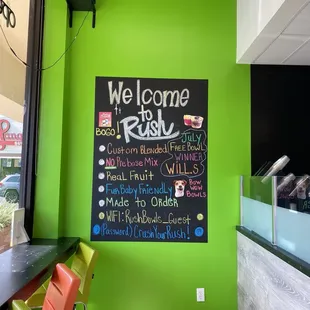 Welcome
to
Rush
BOGO
JULY
FREE BOWL
WINNER
WILL S.
Custom Blended
No Prebase Mix
Real Fruit
Fur Baby Friendly
BOW WOW
BOWLS
Made to Order
WIFI: RushBowls_Guest
(Password) CrushYourRush!